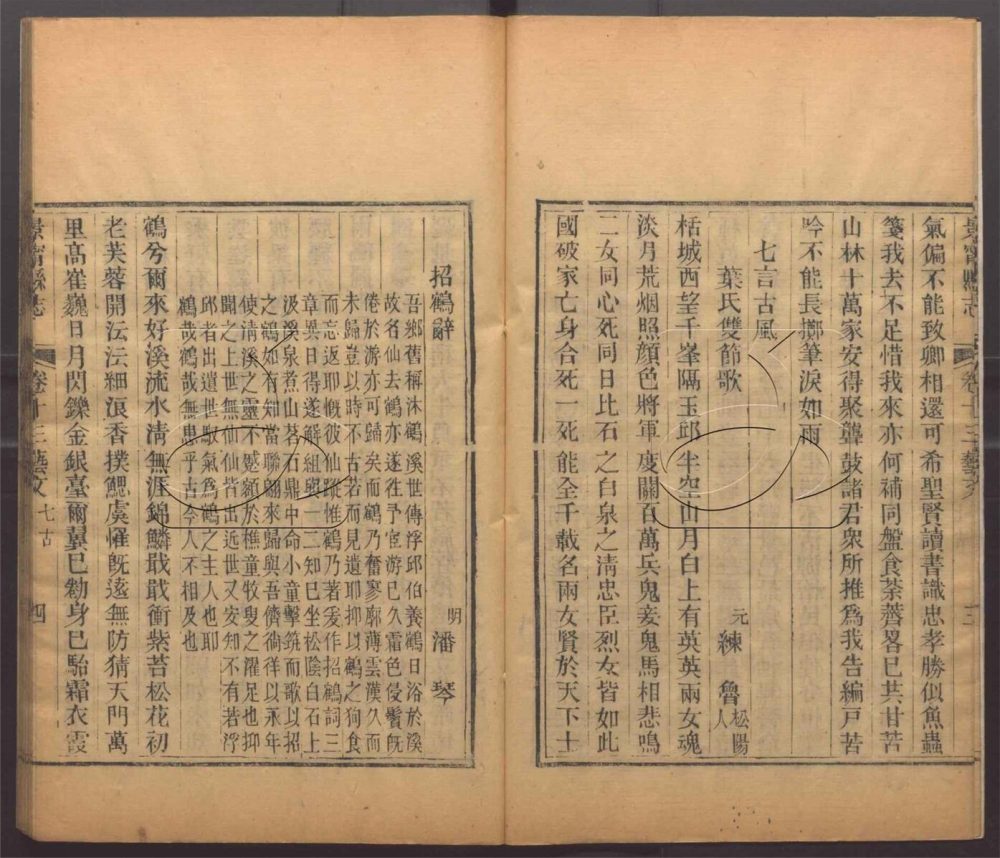 景寧縣志 卷十三 藝文
氣偏不能致卿相還可希聖賢讀書識忠孝勝似魚蟲
箋我去不足惜我來亦何補同盤食荼薺畧已共甘苦
山林十萬家安得聚聾鼓諸君衆所推爲我告編戸苦
吟不能長擲筆淚如雨
七言古風
葉氏雙節歌
元 練 魯 松陽人
栝城西望千峯隔玉邱半空山月白上有英英兩女魂
淡月荒烟照顔色將軍度關百萬兵鬼妾鬼馬相悲鳴
二女同心死同日比石之白泉之淸忠臣烈女皆如此
國破家亡身合死一死能全千載名兩女賢於天下士
招鶴辭
明 潘 琴
吾鄉舊稱沐鶴溪世傳浮邱伯養鶴日浴於溪
故名仙去鶴亦遂徃予宦游已久霜色侵鬢旣
倦於游亦可歸矣而鶴乃奮寥廓薄雲漢久而
未歸豈以時不古若而見遺耶抑以鶴之狥食
而忘返耶慨彼仙蹤惟鶴乃著爰作招鶴詞三
章異日得遂解組與一二知已坐松陰白石上
汲溪泉煮山茗石鼎中命小童擊筑而歌以招
之鶴如有知當聯翩來歸與吾儕徜徉以永年
使淸溪之靈不蹙額於樵童牧叟之濯足也抑
聞之上世無仙仙皆出近世又安知不有若浮
邱者出遺世馭氣爲鶴之主人也耶
鶴哉鶴哉無患乎古今人不相及也
鶴兮爾來好溪流水淸無涯錦鱗戢戢衝紫苔松花初
老芙蓉開沄沄細浪香撲鰓虞懼旣遠無防猜天門萬
里高崔巍日月閃鑠金銀臺爾翼巳勌身巳駘霜衣霞
景寧縣志 卷十三 藝文 七古 四